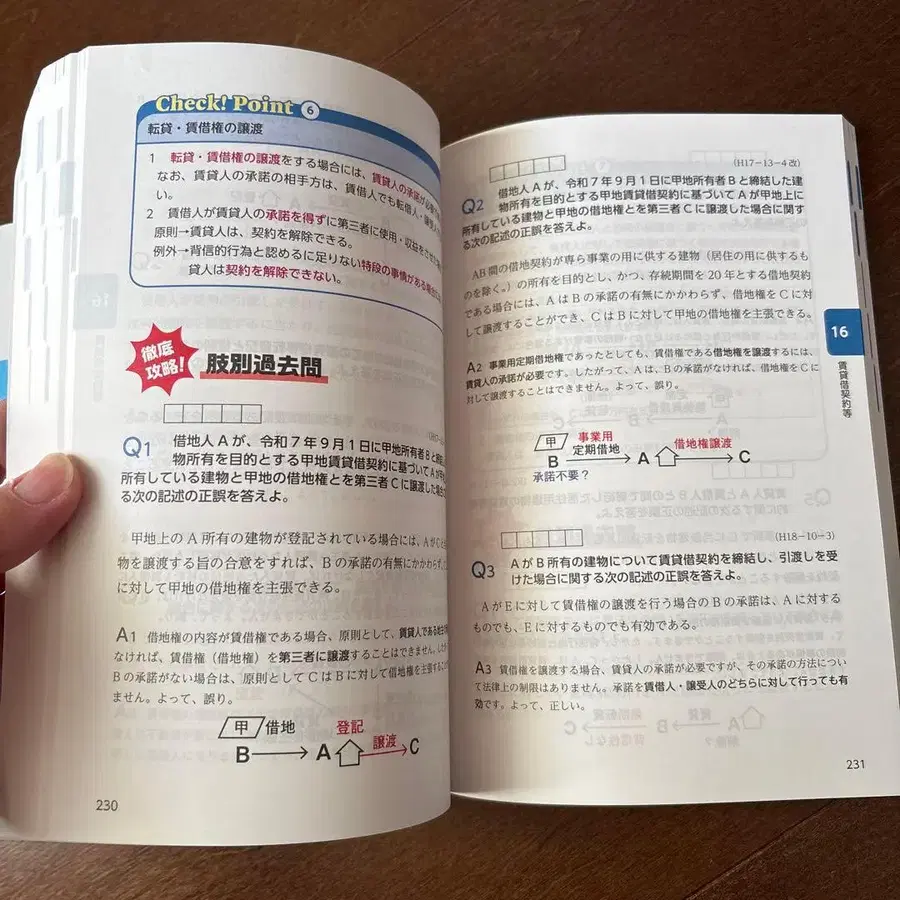 Check! Point 6
転貸・賃借権の譲渡
1 転貸・賃借権の譲渡をする場合には、賃貸人の承諾が必
なお、賃貸人の承諾の相手方は、賃借人でも転借人・譲受人
い。
2 賃借人が賃貸人の承諾を得ずに第三者に使用・収益をさせ
原則→賃貸人は、契約を解除できる。
例外→背信的行為と認めるに足りない特段の事情がある場合
貸人は契約を解除できない。
徹底
攻略!
肢別過去問
Q1 借地人Aが、令和7年9月1日に甲地所有者Bと締結し
物所有を目的とする甲地賃貸借契約に基づいてAが甲
所有している建物と甲地の借地権とを第三者Cに譲渡した場合
る次の記述の正誤を答えよ。
甲地上のA所有の建物が登記されている場合には、AがCと
物を譲渡する旨の合意をすれば、Bの承諾の有無にかかわらず、
に対して甲地の借地権を主張できる。
A1 借地権の内容が賃借権である場合、原則として、賃貸人である
なければ、賃借権(借地権)を第三者に譲渡することはできません。
Bの承諾がない場合は、原則としてCはBに対して借地権を主張する
ません。よって、誤り。
甲 借地 登記
B A 譲渡 C
230
(H17-13-4改)
Q2 借地人Aが、令和7年9月1日に甲地所有者Bと締結した建
物所有を目的とする甲地賃貸借契約に基づいてAが甲地上に
所有している建物と甲地の借地権とを第三者Cに譲渡した場合に関す
る次の記述の正誤を答えよ。
AB間の借地契約が専ら事業の用に供する建物(居住の用に供するも
のを除く。)の所有を目的とし、かつ、存続期間を20年とする借地契約
である場合には、AはBの承諾の有無にかかわらず、借地権をCに対
して譲渡することができ、CはBに対して甲地の借地権を主張できる。
A2 事業用定期借地権であったとしても、賃借権である借地権を譲渡するには、
賃貸人の承諾が必要です。したがって、Aは、Bの承諾がなければ、借地権をCに
対して譲渡することはできません。よって、誤り。
甲 事業用
定期借地 借地権譲渡
B A C
承諾不要?
(H18-10-3)
Q3 AがB所有の建物について賃貸借契約を締結し、引渡しを受
けた場合に関する次の記述の正誤を答えよ。
AがEに対して賃借権の譲渡を行う場合のBの承諾は、Aに対する
ものでも、Eに対するものでも有効である。
A3 賃借権を譲渡する場合、賃貸人の承諾が必要ですが、その承諾の方法につい
て法律上の制限はありません。承諾を賃借人・譲受人のどちらに対して行っても有
効です。よって、正しい。
16
賃貸借契約等
231